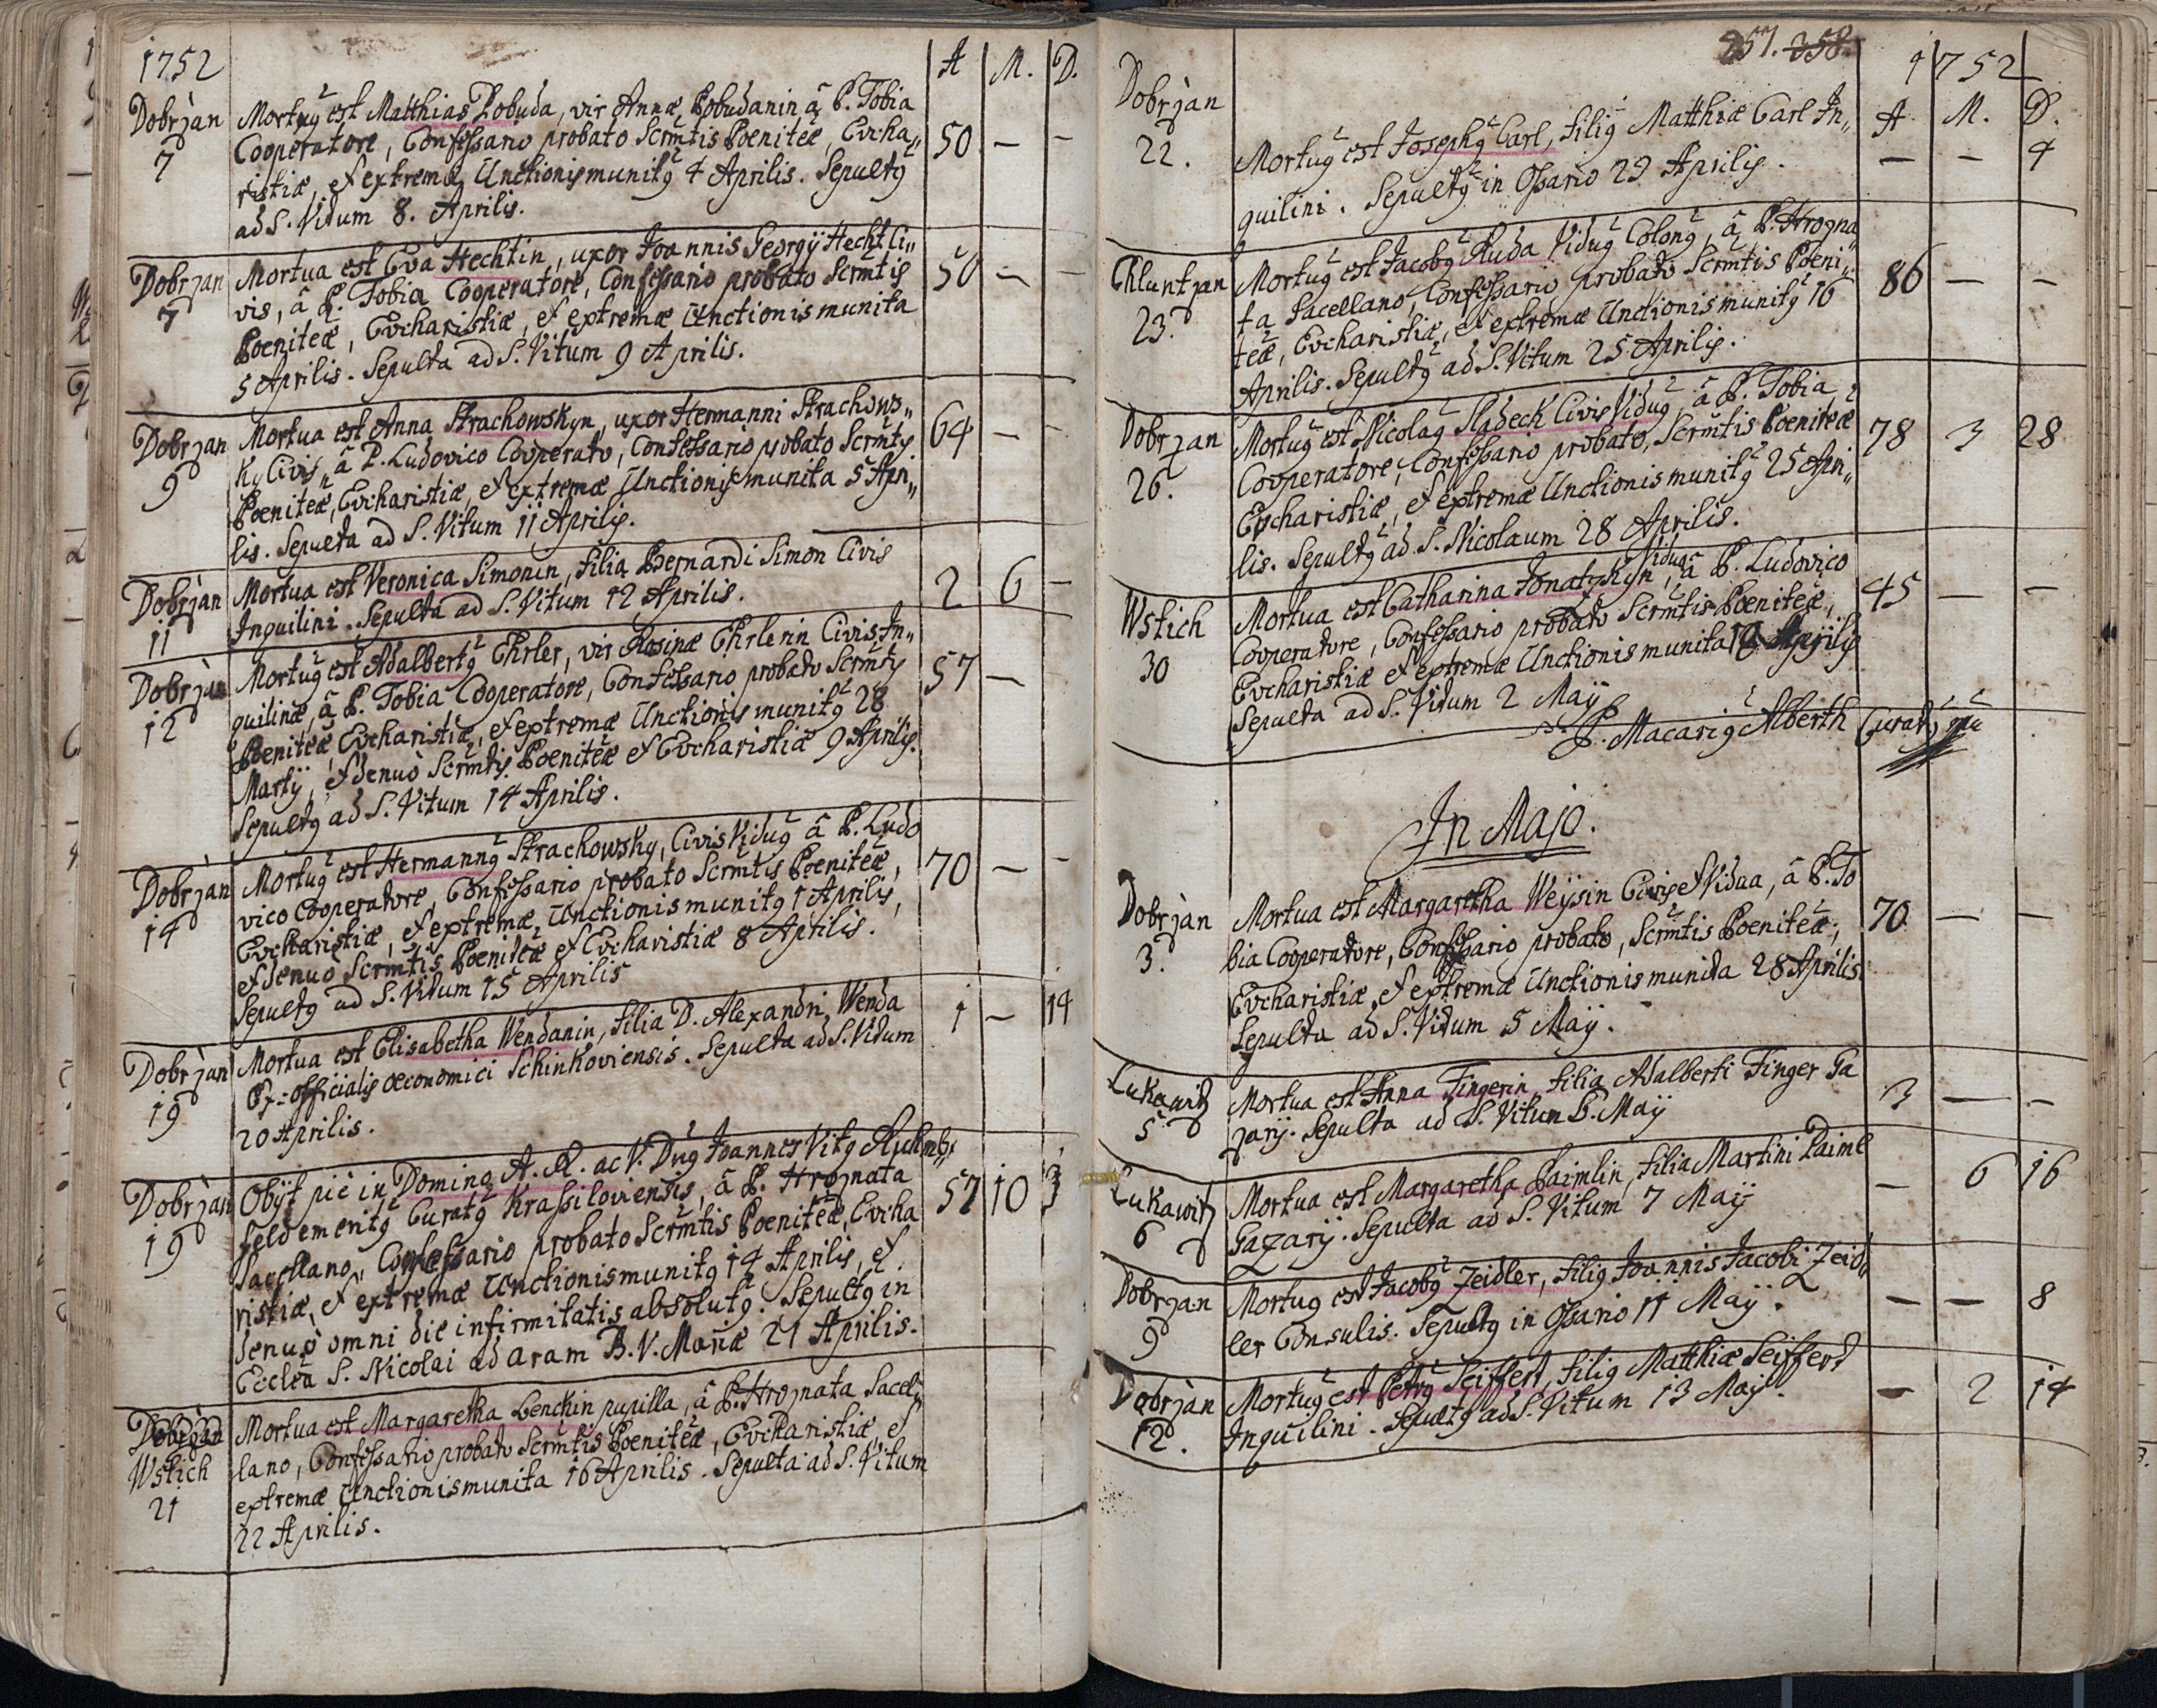 1752 A M. D.
Dobrzan
7
Mortuus est Matthias Pobuda, vir Annæ Pobudanin, â P. Tobia
Cooperatore, Confessario probato Scrmtis Poeniteæ, Evcha„
ristiæ, et extremæ Unctionis munitus 4 Aprilis. Sepultus
ad S. Vidum 8. Aprilis.
50 — —
Dobrzan
7
Mortua est Eva Hechtin, uxor Joannis Georgij Hecht Ci„
vis, â P. Tobia Cooperatore, Confessario probato Scrmtis
Poeniteæ, Evcharistiæ, et extremæ Unctionis munita
5 Aprilis. Sepulta ad S. Vitum 9 Aprilis.
50 — —
Dobrzan
9
Mortua est Anna Strachowskyn, uxor Hermanni Strachows„
ky Civis, â P. Ludovico Cooperato, Confessario probato Scrmty
Poeniteæ, Evcharistiæ, et extremæ Unctionis munita 5 Apri„
lis. Sepulta ad S. Vitum 11 Aprilis.
64 — —
Dobrzan
11
Mortua est Veronica Simonin, filia Bernardi Simon Civis
Inquilini. Sepulta ad S. Vitum 12 Aprilis.
2 6 —
Dobrzan
12
Mortuus est Adalbertus Ehrler, vir Rosinæ Ehrlerin Civis In„
quilinæ, â P. Tobia Cooperatore, Confessario probato Scrmty
Poeniteæ Evcharistiæ, et extremæ Unctionis munitus 28
Martij, et denuò Scrmty Poeniteæ et Evcharistiæ 9 Aprilis.
Sepultus ad S. Vitum 14 Aprilis.
57 —
Dobrzan
14
Mortuus est Hermannus Strachowsky, Civis Viduus â P. Ludo
vico Cooperatore, Confessario probato Scrmtis Poeniteæ,
Evcharistiæ, et extremæ Unctionis munitus 1 Aprilis,
et denuo Scrmtis Poeniteæ et Evcharistiæ 8 Aprilis.
Sepultus ad S. Vitum 15 Aprilis
70 — —
Dobrzan
19
Mortua est Elisabetha Wendanin, filia D. Alexandri Wenda
Ex-officialis oeconomici Schinkoviensis. Sepulta ad S. Vidum
20 Aprilis.
1 — 14
Dobrzan
19
Obijt piè in Domino A. R. ac V. Dnus Joannes Vitus
feld emeritus Curatus Krassiloviensis, â P. Hroznata
Sacellano, Confessario probato Scrmtis Poeniteæ, Evcha
ristiæ, et extremæ Unctionis munitus 14 Aprilis, et
denuo omni die infirmitatis absolutus. Sepultus in
Ecclea S. Nicolai ad aram B. V. Mariæ 21 Aprilis.
57 10 3
Dobrzan
Wstich
21
Mortua est Margaretha Lenckin pupilla, â P. Hroznata Sacel„
lano, Confessario probato Scrmtis Poeniteæ, Evcharistiæ, et
extremæ Unctionis munita 16 Aprilis. Sepulta ad S. Vitum
22 Aprilis.
257. 258.
1752
A M. D.
Dobrzan
22.
Mortuus est Josephus Carl, filius Matthiæ Carl In„
quilini. Sepultus in Ossario 23 Aprilis.
— — 4
Chluntzan
23.
Mortuus est Jacobus Ruda Viduus Colonus, â P. Hrozna
ta Sacellano, Confessario probato Scrmtis Poeni„
teæ, Evcharistiæ, et extremæ Unctionis munitus 16
Aprilis. Sepultus ad S. Vitum 25 Aprilis.
86 — —
Dobrzan
26.
Mortuus est Nicolaus Sladeck Civis Viduus, â P. Tobia
Cooperatore, Confessario probato, Scrmtis Poeniteæ
Evcharistiæ, et extremæ Unctionis munitus 25 Apri„
lis. Sepultus ad S. Nicolaum 28 Aprilis.
78 3 28
Wstich
30
Mortua est Catharina Jonatzkyn Vidua, â P. Ludovico
Cooperatore, Confessario probato Scrmtis Poeniteæ,
Evcharistiæ et extremæ Unctionis munita
Sepulta ad S. Vidum 2 Maij
45 — —
P. Macarius Alberth Curatus
In Majo.
Dobrzan
3.
Mortua est Margaretha Weysin Civis et Vidua, â P. To
bia Cooperatore, Confessario probato, Scrmtis Poeniteæ,
Evcharistiæ, et extremæ Unctionis munita 28 Aprilis
Sepulta ad S. Vidum 5 Maij.
70 — —
Lukawitz
5
Mortua est Anna Fingerin, filia Adalberti Finger Ga
zarij. Sepulta ad S. Vitum 6. Maij
3 — —
Lukawitz
6
Mortua est Margaretha Paimlin, filia Martini Paiml
Gazarij. Sepulta ad S. Vitum 7 Maij
— 6 16
Dobrzan
9
Mortuus est Jacobus Zeidler, filius Joannis Jacobi Zeid„
ler Consulis. Sepultus in Ossario 11 Maij.
— — 8
Dobrzan
12.
Mortuus est Petrus Seiffert, filius Matthiæ Seiffert
Inquilini. Sepultus ad S. Vitum 13 Maij.
— 2 14